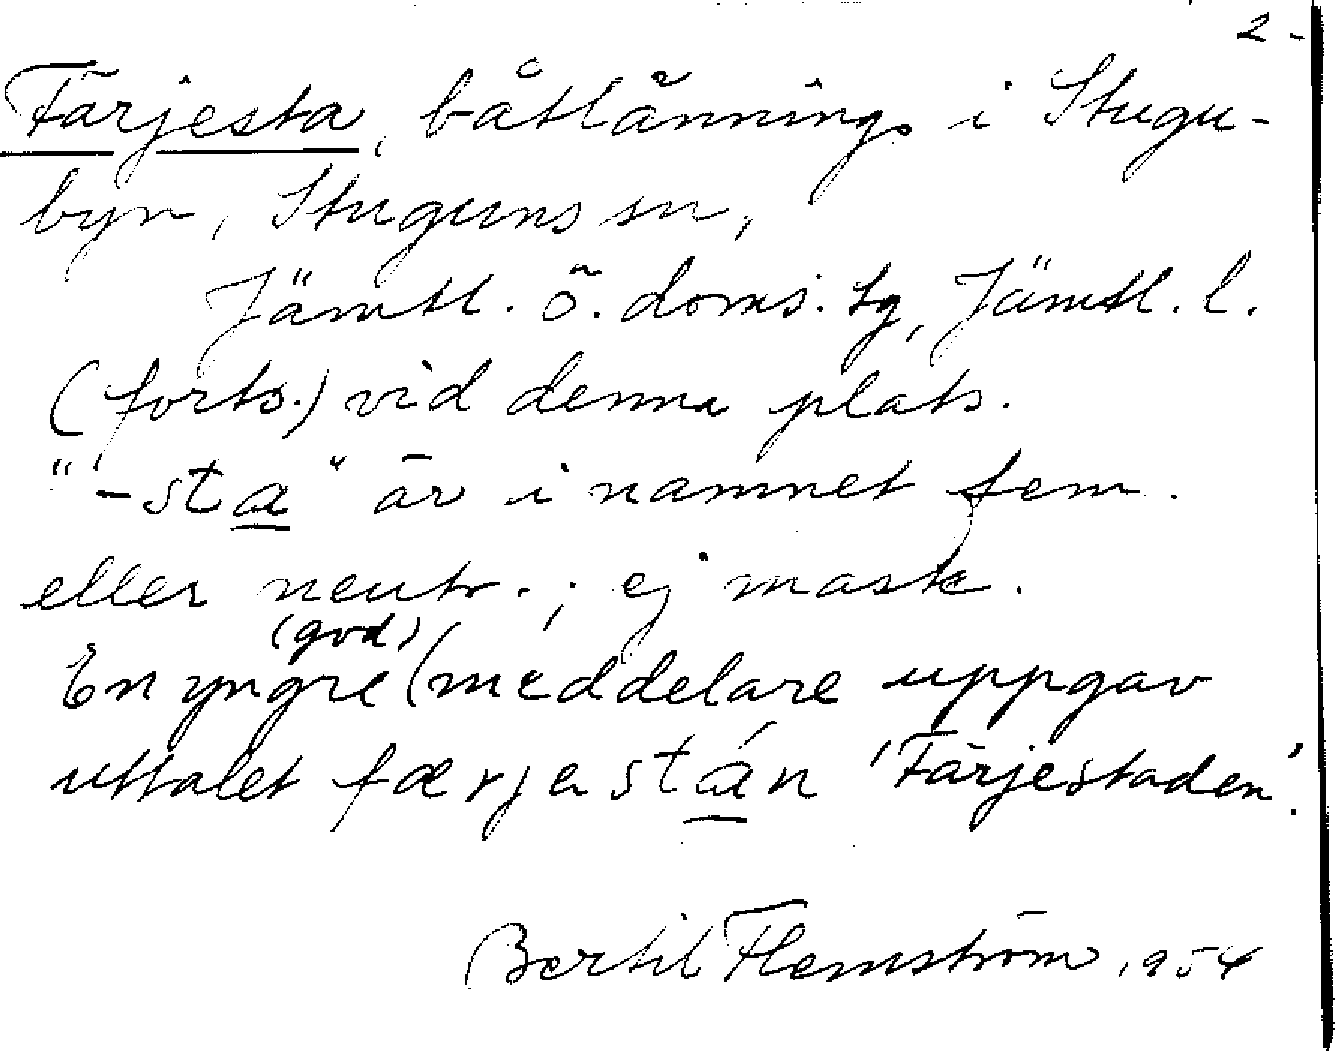 2.
Färjesta, båtlännings i Stugu-
byn, Stuguns sn,
Jämtl. ö. doms. tg, Jämtl. l.
(forts.) vid denna plats.
"-sta" är i namnet fem.
eller neutr.; ej mask.
(god)
En yngre (meddelare uppgav
uttalet færjestán 'Färjestaden'.
Bertil Flemström 1954